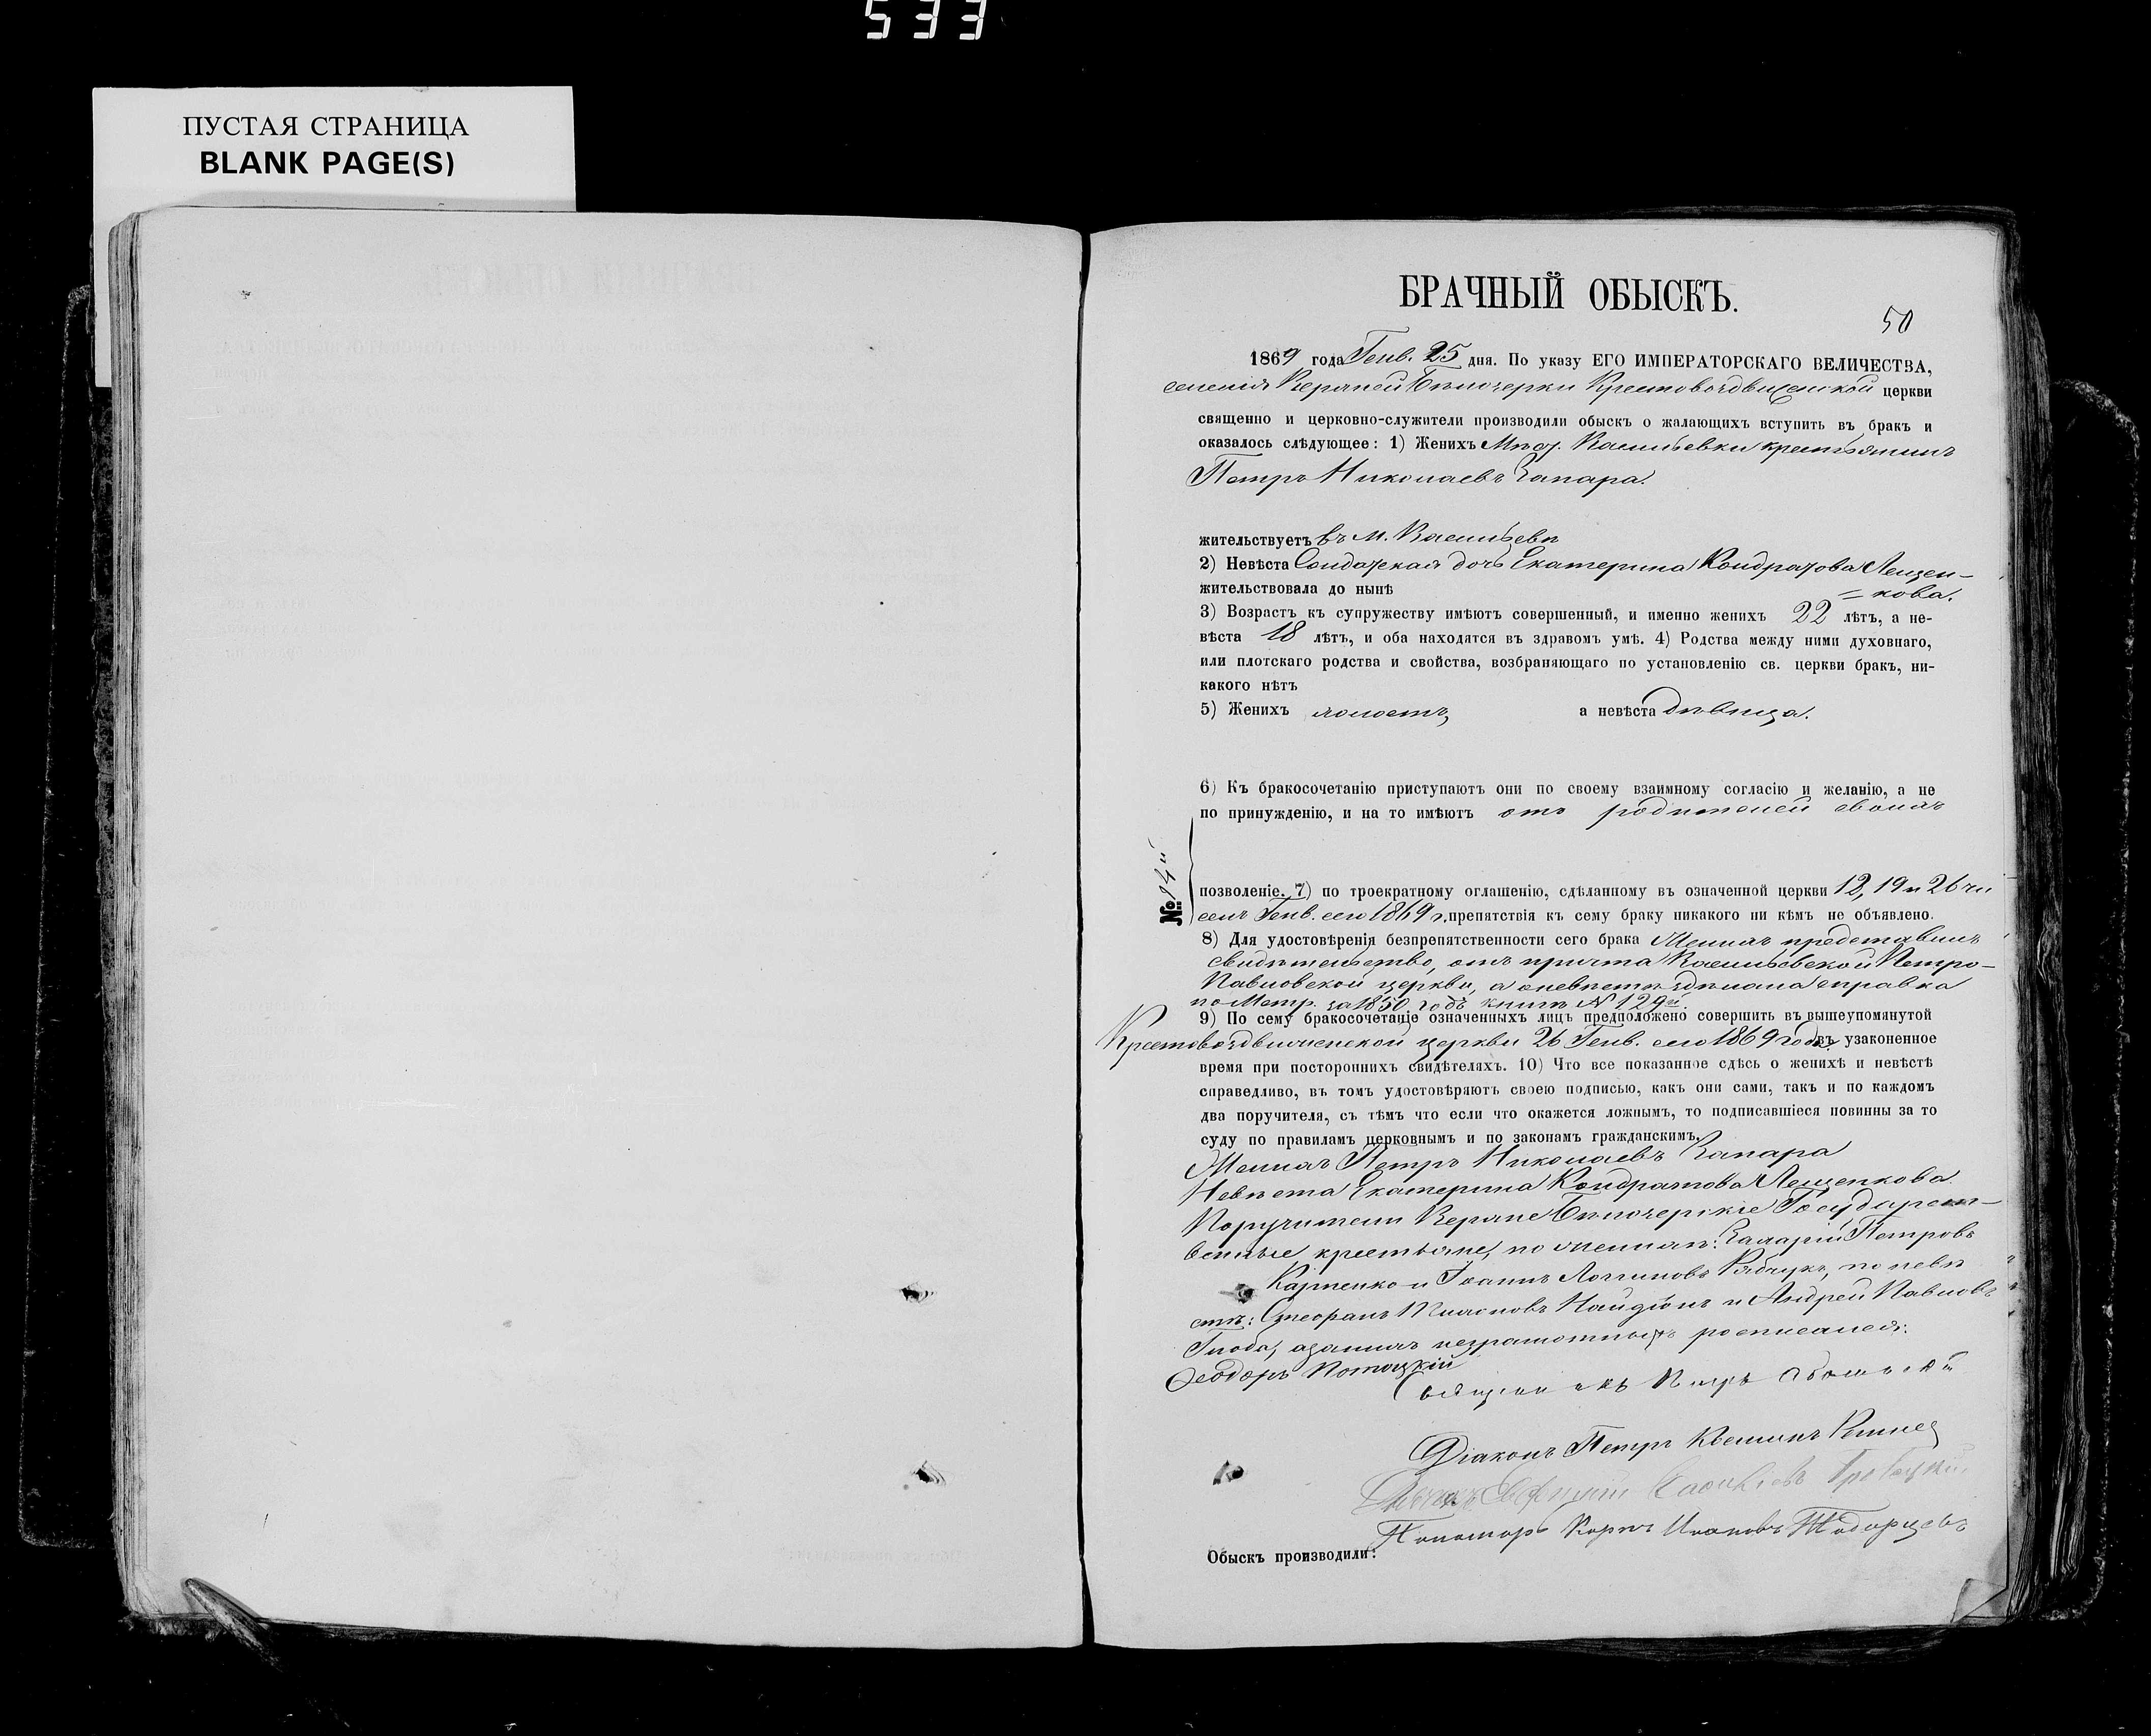 533
ПУСТАЯ СТРАНИЦА
BLANK PAGE(S)
БРАЧНЫЙ ОБЫСКЪ.
50
1869 года Генв. 25 дня. По указу ЕГО ИМПЕРАТОРСКАГО ВЕЛИЧЕСТВА,
селенія Верхней Бѣлозерки Крестовоздвиженской церкви
священно и церковно-служители производили обыскъ о жалающихъ вступить въ бракъ и
оказалось слѣдующее: 1) Женихъ Мѣст. Васильевки крестьянинъ
Петръ Николаевъ Запара.
жительствуетъ въ м. Васильевѣ
2) Невѣста Солдатская дочь Екатерина Кондратова Лещен-
жительствовала до нынѣ = кова.
3) Возрастъ къ супружеству имѣютъ совершенный, и именно женихъ 22 лѣтъ, а не-
вѣста 18 лѣтъ, и оба находятся въ здравомъ умѣ. 4) Родства между ними духовнаго,
или плотскаго родства и свойства, возбраняющаго по установленію св. церкви бракъ, ни-
какого нѣтъ
5) Женихъ холостъ, а невѣста дѣвица.
6) Къ бракосочетанію приступаютъ они по своему взаимному согласію и желанію, а не
по принужденію, и на то имѣютъ отъ родителей своихъ
№
позволеніе. 7) по троекратному оглашенію, сдѣланному въ означенной церкви 12, 19 и 26 чи
селъ Генв. сего 1869 г. препятствія къ сему браку никакого ни кѣмъ не объявлено.
8) Для удостовѣренія безпрепятственности сего брака Женихъ представилъ
свидѣтельство, отъ причта Васильевской Петро-
Павловской церкви, а о невѣстѣ здѣлана справка
по Метр. за 1850 годъ книгѣ N 129й.
9) По сему бракосочетаніе означенныхъ лицъ предположено совершить въ вышеупомянутой
Крестовоздвиженской церкви 26 Генв. сего 1869 года въ узаконенное
время при постороннихъ свидѣтеляхъ. 10) Что все показанное сдѣсь о женихѣ и невѣстѣ
справедливо, въ томъ удостовѣряютъ своею подписью, какъ они сами, такъ и по каждомъ
два поручителя, съ тѣмъ что если что окажется ложнымъ, то подписавшіеся повинны за то
суду по правиламъ церковнымъ и по законамъ гражданскимъ.
Женихъ Петръ Николаевъ Запара
Невѣста Екатерина Кондратова Лещенкова
Поручители Верхне Бѣлозерскіе Государст-
венные крестьяне, по женихѣ: Захарій Петровъ
Карпенко и Іоаннъ Логгиновъ Рябчукъ, по невѣ
стѣ: Стефанъ Найдіонъ и Андрей Павловъ
неграмотныхъ росписался:
Феодоръ Потоцкій
Священникъ Петръ
Діаконъ Петръ
Пономарь Карпъ Ивановъ
Обыскъ производили: